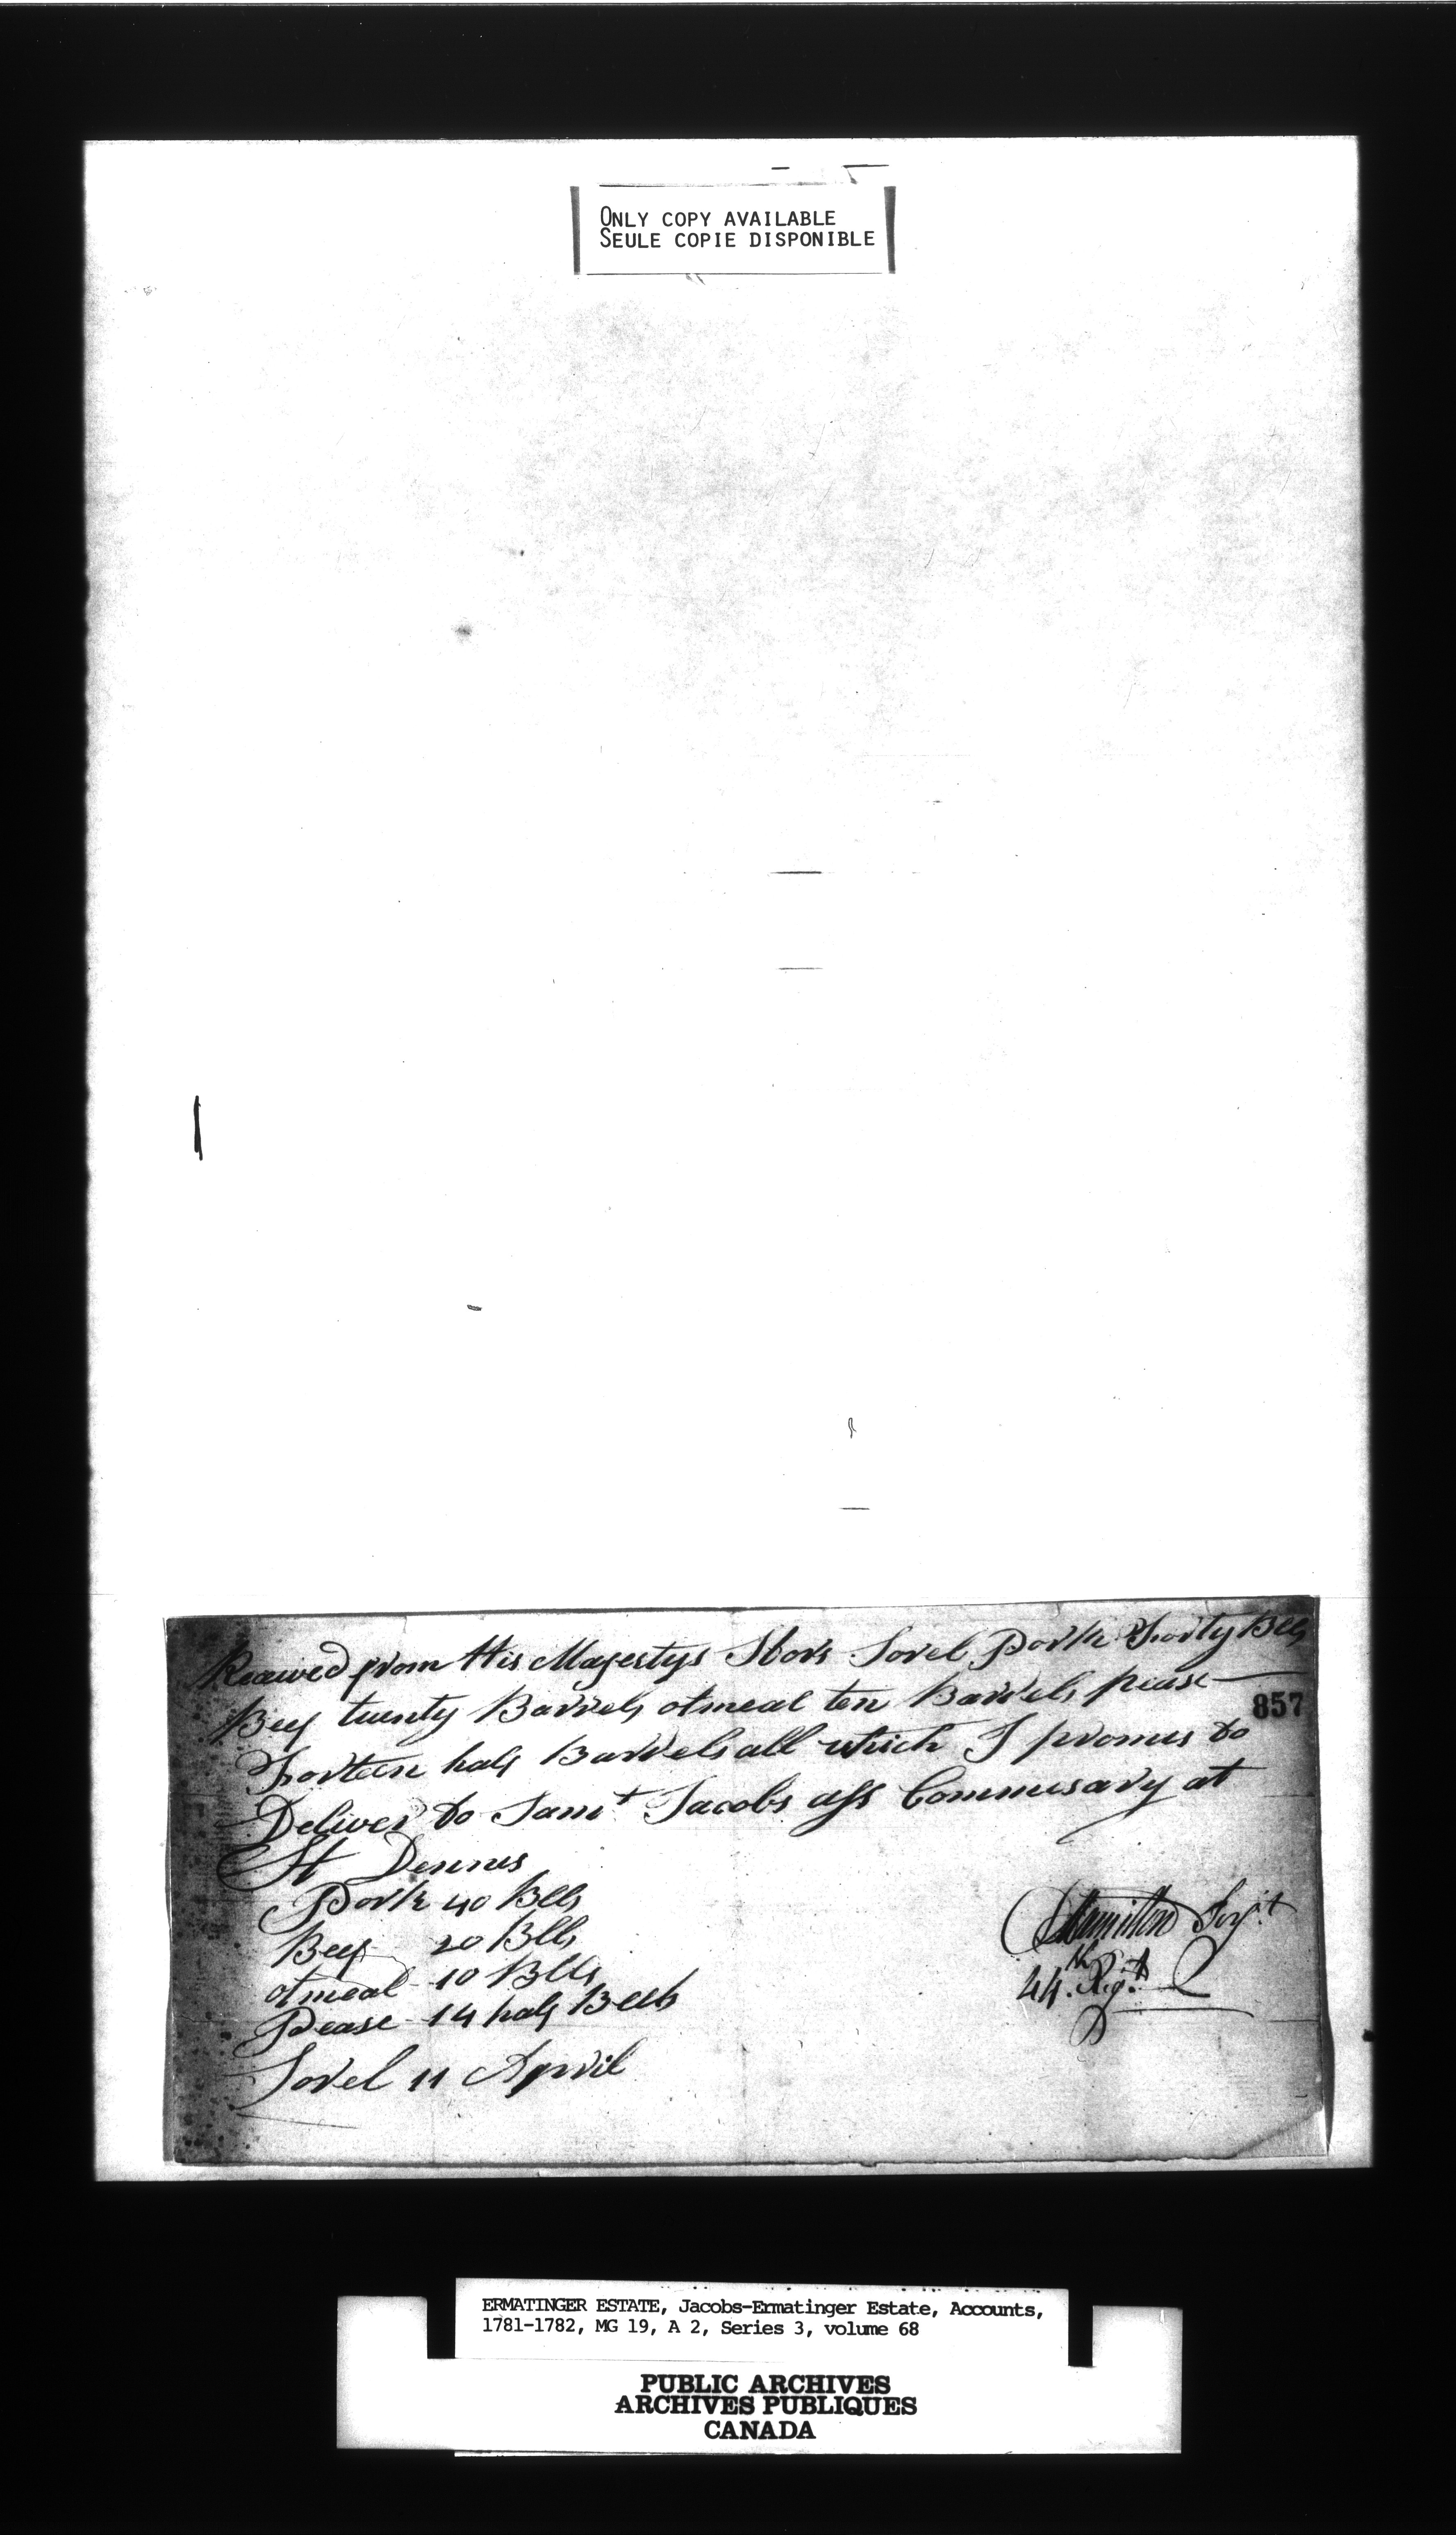 ONLY COPY AVAILABLE
SEULE COPIE DISPONIBLE
Received from His Majestys Stors Sorel Pork Forty Blls
Beef twenty Barrels otmeal ten Barrels pease
857
Forteen half Barrels all which I promis to
Deliver to Samt Jacobs ass Commusary at
St Dennis
Pork 40 Blls
Beef 20 Blls
otmeal - 10 Blls
Pease - 14 half Blls
Hamilton Serjt
44th Regt
Sorel 11 April
ERMATINGER ESTATE, Jacobs-Ermatinger Estate, Accounts,
1781-1782, MG 19, A 2, Series 3, volume 68
PUBLIC ARCHIVES
ARCHIVES PUBLIQUES
CANADA